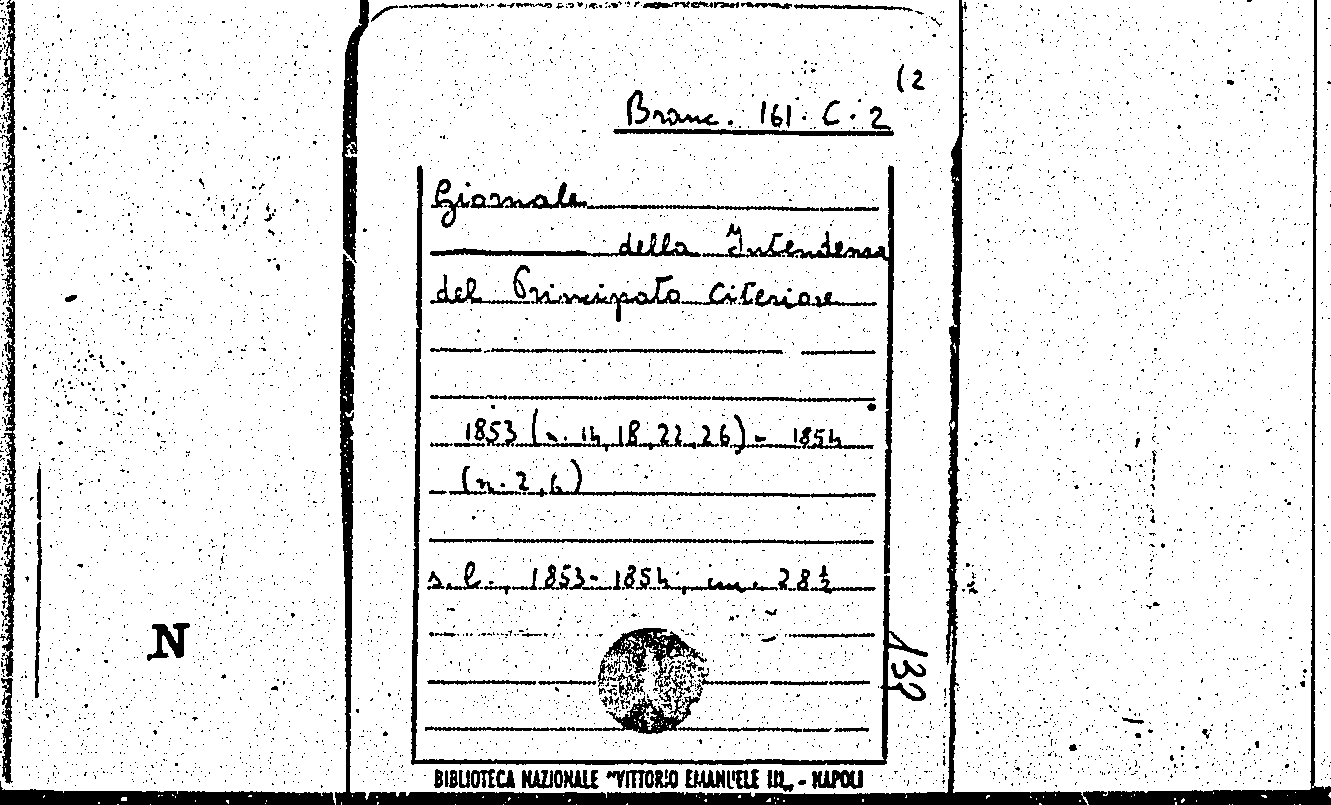 (2
Branc. 161. C. 2
Giornale
della Intendenza
del Principato Citeriore
1853 (n. 14, 18, 22, 26) - 1854
(n. 2, 6)
s. l., 1853-1854, in. 28 ½
139
N
BIBLIOTECA NAZIONALE "VITTORIO EMANUELE III„ - NAPOLI